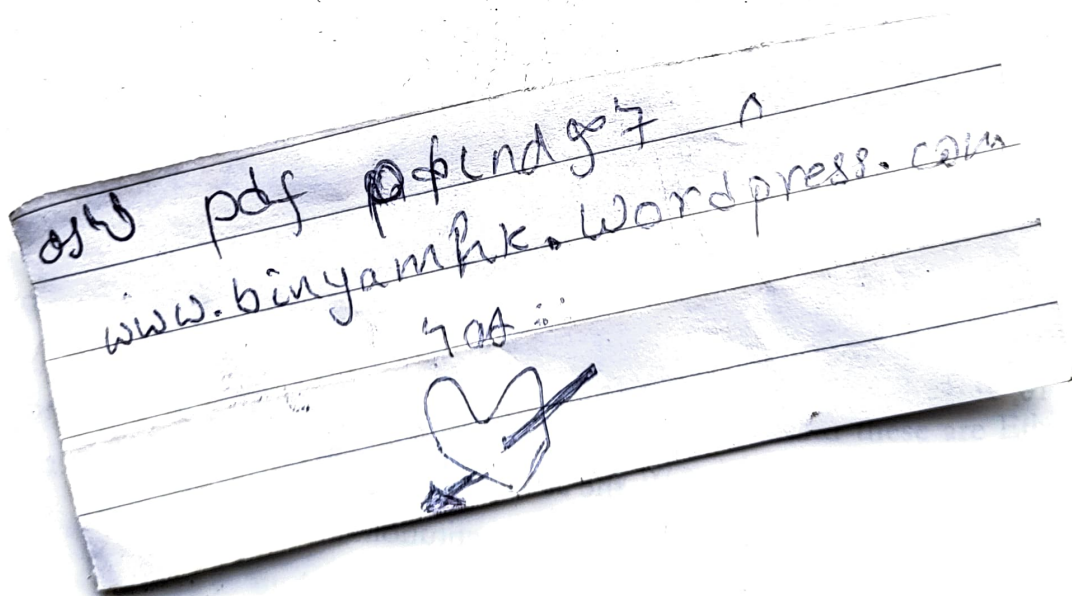 ይህ pdf የቀረበላችሁ ከ
www.binyamhk.wordpress.com
ነው ።